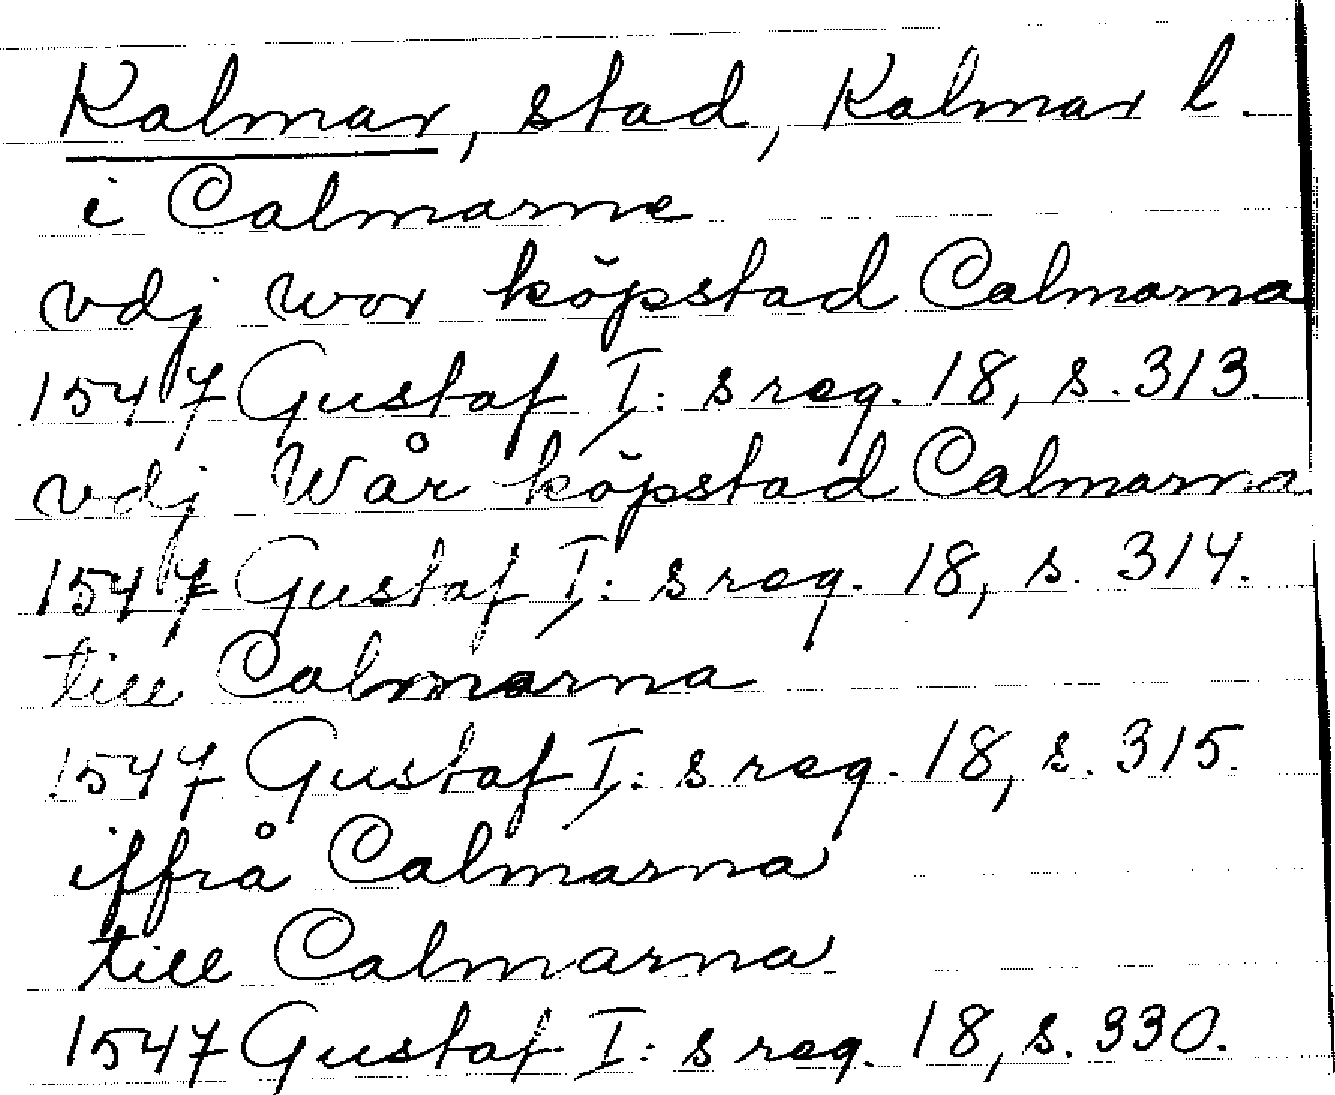 Kalmar, stad, Kalmar l.
i Calmarne
vdj wor köpstad Calmarna
1547 Gustaf I:s reg. 18, s. 313.
vdj Wår köpstad Calmarna
1547 Gustaf I:s reg. 18, s. 314.
till Calmarna
1547 Gustaf I:s reg. 18, s. 315.
iffrå Calmarna
till Calmarna
1547 Gustaf I:s reg. 18, s. 330.